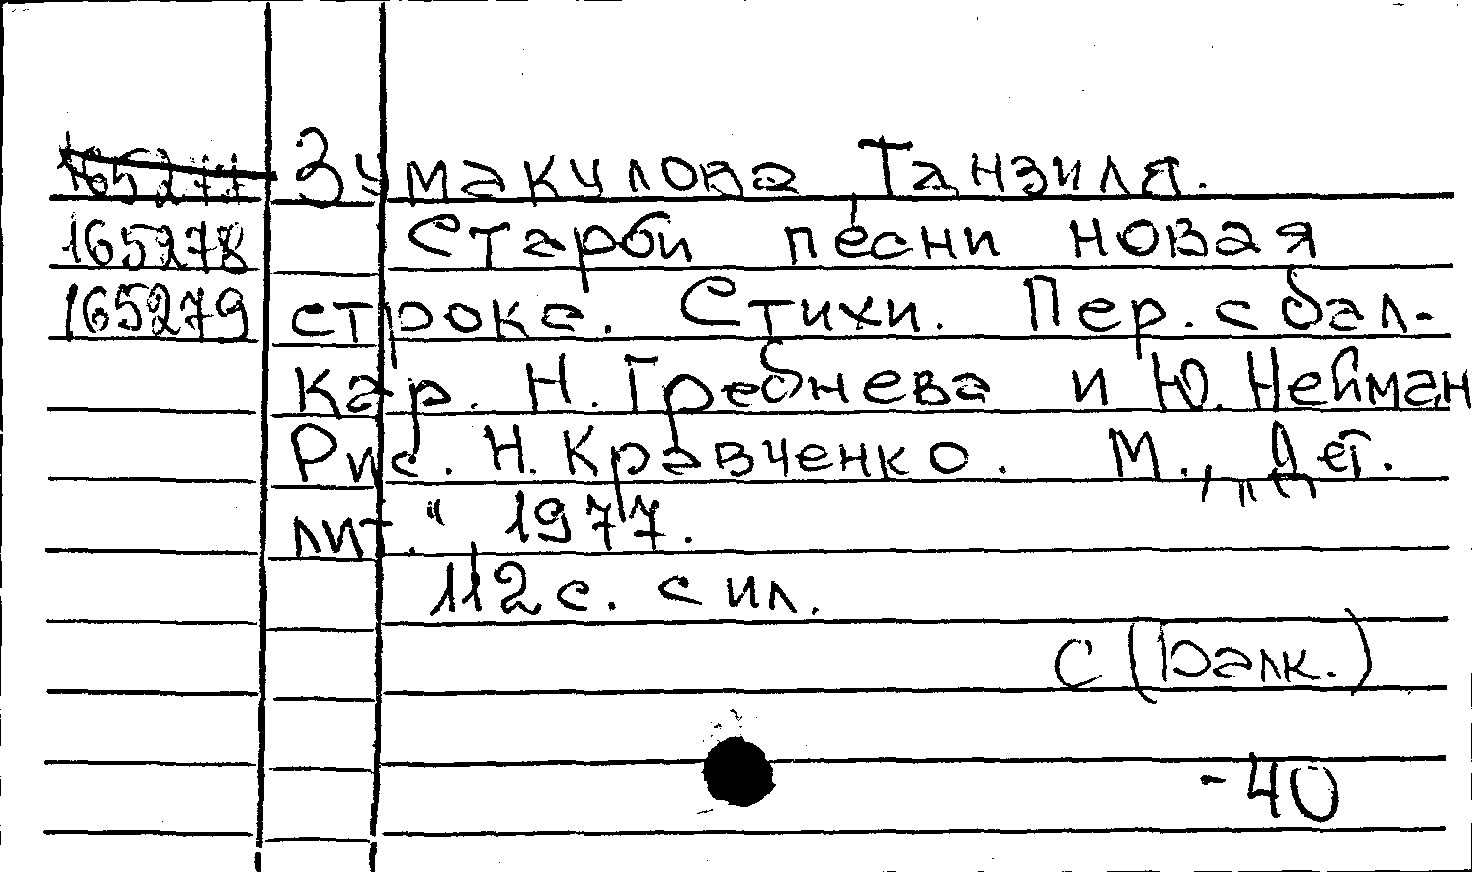 165277 Зумакулова Танзиля.
165278 Старой песни новая
165279 строка. Стихи. Пер. с бал-
кар. Н. Гребнева и Ю. Нейман
Рис. Н. Кравченко. М., „Дет.
лит.“, 1977.
112 с. с ил.
С (Балк.)
-40